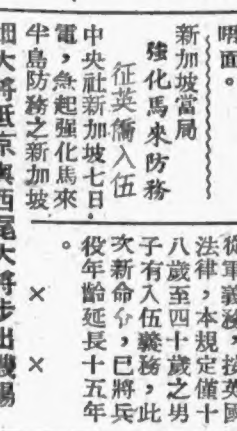 晤面。
新加坡當局
強化馬來防務
征英僑入伍
中央社新加坡七日。
電，急起強化馬來
半島防務之新加坡
從軍義務，按英國
法律，本規定僅十
八歲至四十歲之男
子有入伍義務，此
次新命令，已將兵
役年齡延長十五年
。
× ×
畑大將抵京與西尾大將步出機場